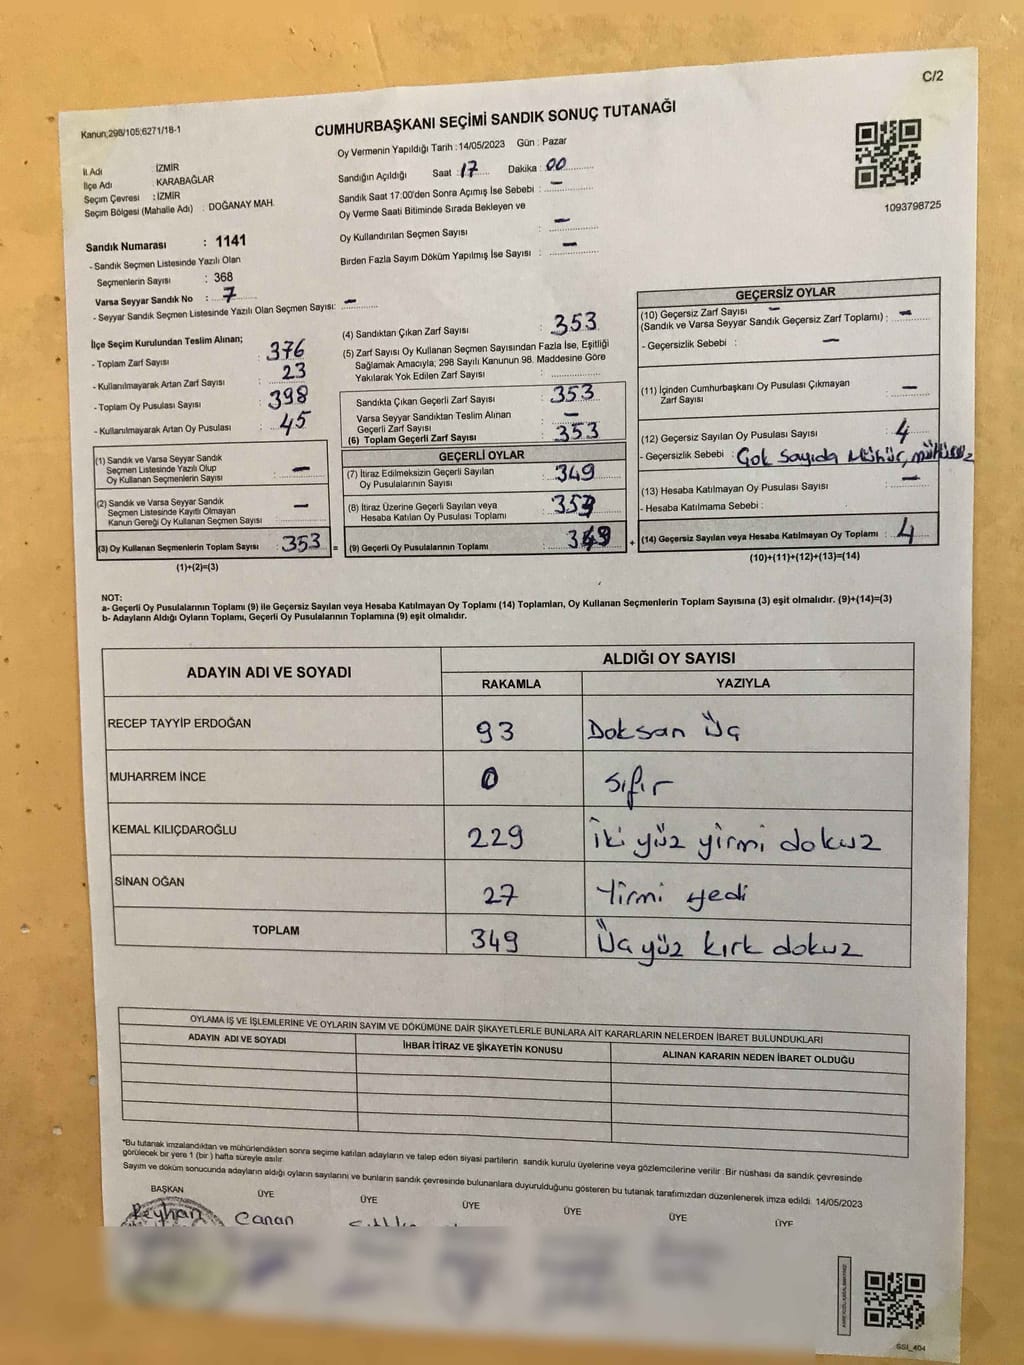 C/2
Kanun;298/105;6271/18-1
CUMHURBAŞKANI SEÇİMİ SANDIK SONUÇ TUTANAĞI
Oy Vermenin Yapıldığı Tarih :14/05/2023 Gün : Pazar
İl Adı : İZMİR
İlçe Adı : KARABAĞLAR
Seçim Çevresi : İZMİR
Seçim Bölgesi (Mahalle Adı) : DOĞANAY MAH.
Sandığın Açıldığı Saat : 17 Dakika : 00
Sandık Saat 17:00'den Sonra Açımış İse Sebebi : —
Oy Verme Saati Bitiminde Sırada Bekleyen ve
Oy Kullandırılan Seçmen Sayısı : —
Birden Fazla Sayım Döküm Yapılmış İse Sayısı : —
1093798725
Sandık Numarası : 1141
- Sandık Seçmen Listesinde Yazılı Olan
Seçmenlerin Sayısı : 368
Varsa Seyyar Sandık No : 7
- Seyyar Sandık Seçmen Listesinde Yazılı Olan Seçmen Sayısı: —
İlçe Seçim Kurulundan Teslim Alınan;
- Toplam Zarf Sayısı : 376
- Kullanılmayarak Artan Zarf Sayısı : 23
- Toplam Oy Pusulası Sayısı : 398
- Kullanılmayarak Artan Oy Pusulası : 45
(1) Sandık ve Varsa Seyyar Sandık
Seçmen Listesinde Yazılı Olup
Oy Kullanan Seçmenlerin Sayısı : —
(2) Sandık ve Varsa Seyyar Sandık
Seçmen Listesinde Kayıtlı Olmayan
Kanun Gereği Oy Kullanan Seçmen Sayısı : —
(3) Oy Kullanan Seçmenlerin Toplam Sayısı : 353 =
(1)+(2)=(3)
(4) Sandıktan Çıkan Zarf Sayısı : 353
(5) Zarf Sayısı Oy Kullanan Seçmen Sayısından Fazla İse, Eşitliği
Sağlamak Amacıyla; 298 Sayılı Kanunun 98. Maddesine Göre
Yakılarak Yok Edilen Zarf Sayısı :
Sandıkta Çıkan Geçerli Zarf Sayısı : 353
Varsa Seyyar Sandıktan Teslim Alınan
Geçerli Zarf Sayısı : —
(6) Toplam Geçerli Zarf Sayısı : 353
GEÇERLİ OYLAR
(7) İtiraz Edilmeksizin Geçerli Sayılan
Oy Pusulalarının Sayısı : 349
(8) İtiraz Üzerine Geçerli Sayılan veya
Hesaba Katılan Oy Pusulası Toplamı : 353
(9) Geçerli Oy Pusulalarının Toplamı : 349 +
GEÇERSİZ OYLAR
(10) Geçersiz Zarf Sayısı —
(Sandık ve Varsa Seyyar Sandık Geçersiz Zarf Toplamı) : —
- Geçersizlik Sebebi : —
(11) İçinden Cumhurbaşkanı Oy Pusulası Çıkmayan
Zarf Sayısı : —
(12) Geçersiz Sayılan Oy Pusulası Sayısı : 4
- Geçersizlik Sebebi : Çok sayıda Mühür,
(13) Hesaba Katılmayan Oy Pusulası Sayısı : —
- Hesaba Katılmama Sebebi :
(14) Geçersiz Sayılan veya Hesaba Katılmayan Oy Toplamı : 4
(10)+(11)+(12)+(13)=(14)
NOT:
a- Geçerli Oy Pusulalarının Toplamı (9) ile Geçersiz Sayılan veya Hesaba Katılmayan Oy Toplamı (14) Toplamları, Oy Kullanan Seçmenlerin Toplam Sayısına (3) eşit olmalıdır. (9)+(14)=(3)
b- Adayların Aldığı Oyların Toplamı, Geçerli Oy Pusulalarının Toplamına (9) eşit olmalıdır.
ADAYIN ADI VE SOYADI
ALDIĞI OY SAYISI
RAKAMLA YAZIYLA
RECEP TAYYİP ERDOĞAN 93 Doksan Üç
MUHARREM İNCE 0 sıfır
KEMAL KILIÇDAROĞLU 229 İki yüz yirmi dokuz
SİNAN OĞAN 27 Yirmi yedi
TOPLAM 349 Üç yüz kırk dokuz
OYLAMA İŞ VE İŞLEMLERİNE VE OYLARIN SAYIM VE DÖKÜMÜNE DAİR ŞİKAYETLERLE BUNLARA AİT KARARLARIN NELERDEN İBARET BULUNDUKLARI
ADAYIN ADI VE SOYADI İHBAR İTİRAZ VE ŞİKAYETİN KONUSU ALINAN KARARIN NEDEN İBARET OLDUĞU
*Bu tutanak imzalandıktan ve mühürlendikten sonra seçime katılan adayların ve talep eden siyasi partilerin sandık kurulu üyelerine veya gözlemcilerine verilir. Bir nüshası da sandık çevresinde
görülecek bir yere 1 (bir) hafta süreyle asılır.
Sayım ve döküm sonucunda adayların aldığı oyların sayılarını ve bunların sandık çevresinde bulunanlara duyurulduğunu gösteren bu tutanak tarafımızdan düzenlenerek imza edildi. 14/05/2023
BAŞKAN ÜYE ÜYE ÜYE ÜYE ÜYE ÜYE
Reyhan Canan
SSI_404